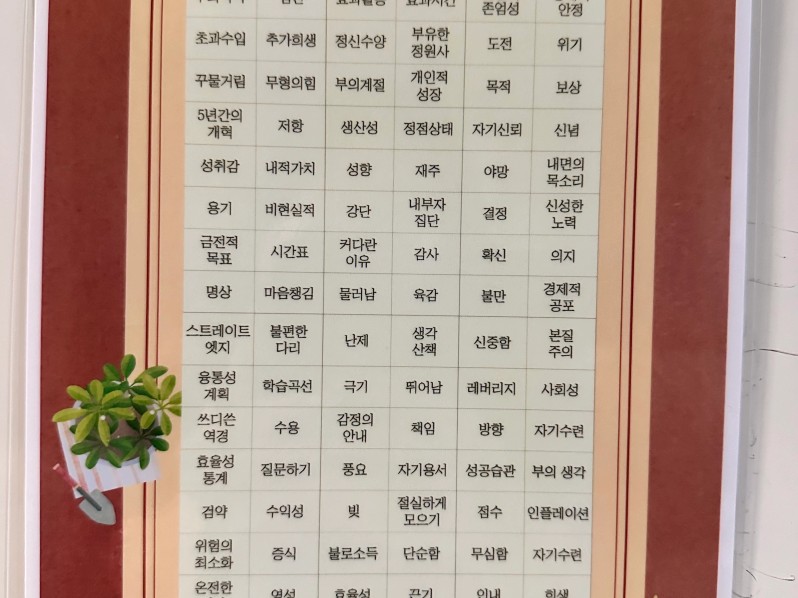 존엄성 안정
초과수입 추가희생 정신수양 부유한 정원사 도전 위기
꾸물거림 무형의힘 부의계절 개인적 성장 목적 보상
5년간의 개혁 저항 생산성 정점상태 자기신뢰 신념
성취감 내적가치 성향 재주 야망 내면의 목소리
용기 비현실적 강단 내부자 집단 결정 신성한 노력
금전적 목표 시간표 커다란 이유 감사 확신 의지
명상 마음챙김 물러남 육감 불만 경제적 공포
스트레이트 엣지 불편한 다리 난제 생각 산책 신중함 본질 주의
융통성 계획 학습곡선 극기 뛰어남 레버리지 사회성
쓰디쓴 역경 수용 감정의 안내 책임 방향 자기수련
효율성 통계 질문하기 풍요 자기용서 성공습관 부의 생각
검약 수익성 빚 절실하게 모으기 점수 인플레이션
위험의 최소화 증식 불로소득 단순함 무심함 자기수련
온전한 역설 효율성 끈기 인내 희생